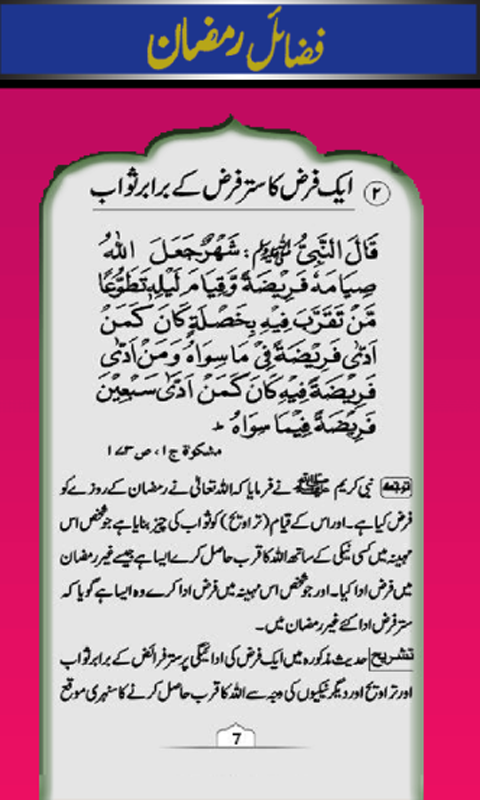 فضائل رمضان
۲ ایک فرض کا ستر فرض کے برابر ثواب
قَالَ النَّبِیُّ ﷺ: شَهْرٌ جَعَلَ اللّٰهُ
صِیَامَهٗ فَرِیْضَةً وَّقِیَامَ لَیْلِهٖ تَطَوُّعًا
مَّنْ تَقَرَّبَ فِیْهِ بِخَصْلَةٍ کَانَ کَمَنْ
اَدّٰی فَرِیْضَةً فِیْ مَا سِوَاهُ وَمَنْ اَدّٰی
فَرِیْضَةً فِیْهِ کَانَ کَمَنْ اَدّٰی سَبْعِیْنَ
فَرِیْضَةً فِیْمَا سِوَاهُ
مشکوٰۃ ج۱، ص ۱۷۳
ترجمہ نبی کریم ﷺ نے فرمایا کہ اللہ تعالیٰ نے رمضان کے روزے کو
فرض کیا ہے۔ اور اس کے قیام (تراویح) کو ثواب کی چیز بنایا ہے جو شخص اس
مہینہ میں کسی نیکی کے ساتھ اللہ کا قرب حاصل کرے ایسا ہے جیسے غیر رمضان
میں فرض ادا کیا۔ اور جو شخص اس مہینہ میں فرض ادا کرے وہ ایسا ہے گویا کہ
ستر فرض ادا کئے غیر رمضان میں۔
تشریح حدیث مذکورہ میں ایک فرض کی ادائیگی پر ستر فرائض کے برابر ثواب
اور تراویح اور دیگر نیکیوں کی وجہ سے اللہ کا قرب حاصل کرنے کا سنہری موقع
7